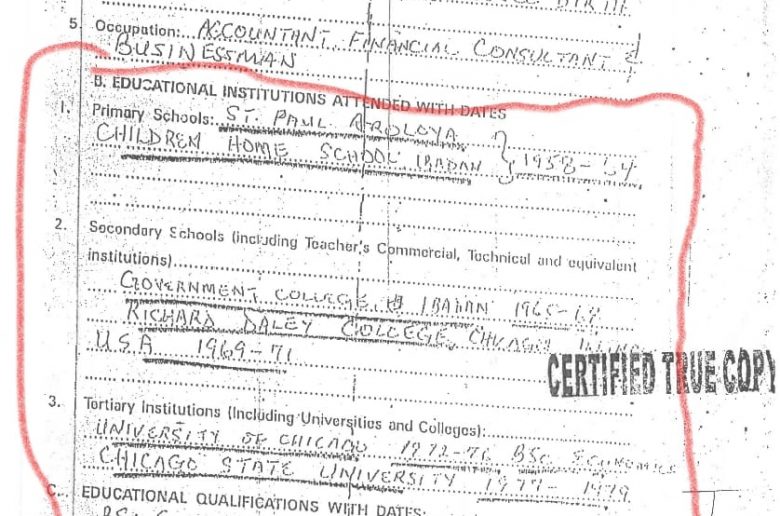 5. Occupation: ACCOUNTANT, FINANCIAL CONSULTANT &
BUSINESSMAN
B. EDUCATIONAL INSTITUTIONS ATTENDED WITH DATES
1. Primary Schools: ST. PAUL AROLOYA
CHILDREN HOME SCHOOL IBADAN } 1958-64
2. Secondary Schools (including Teacher's Commercial, Technical and equivalent
institutions)
GOVERNMENT COLLEGE, IBADAN 1965-68
RICHARD DALEY COLLEGE, CHICAGO
U.S.A 1969-71
CERTIFIED TRUE COPY
3. Tertiary Institutions (Including Universities and Colleges):
UNIVERSITY OF CHICAGO 1972-76 BSC ECONOMICS
CHICAGO STATE UNIVERSITY 1977-1979
C. EDUCATIONAL QUALIFICATIONS WITH DATES: